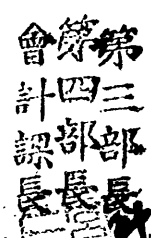 第三部長
第四部長
會計課長